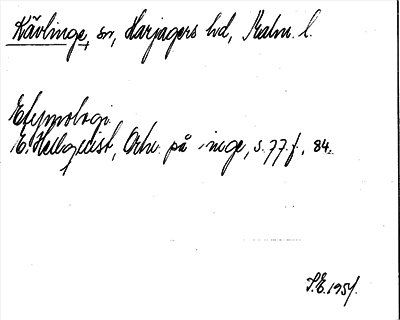 Kävlinge, sn, Harjagers hd, Malm. l.
Etymologi.
E. Hellquist, Ortn. på -inge, s. 77 f., 84.
S.E. 1951.